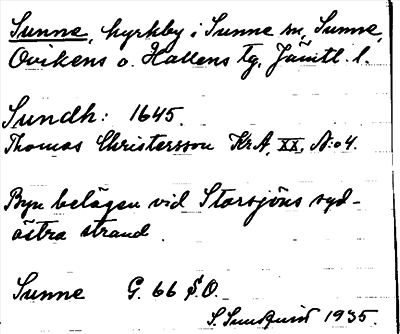 Sunne, kyrkby i Sunne sn, Sunne,
Ovikens o. Hallens tg, Jämtl. l.
Sundh: 1645.
Thomas Christersson KrA, XX, N:o 4.
Byn belägen vid Storsjöns syd-
östra strand.
Sunne G. 66 S.O.
S. Sundquist 1935.